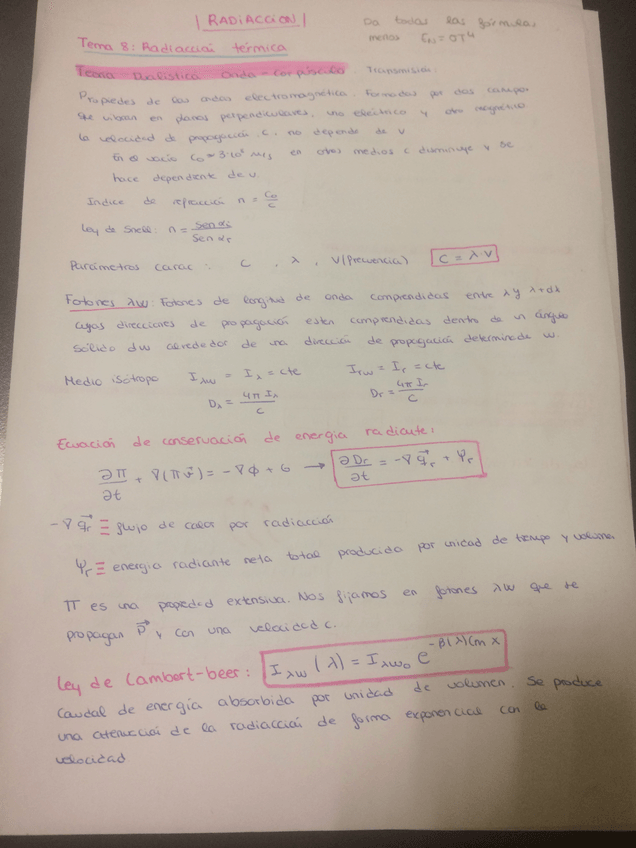 | RADIACCION |
Da todas las fórmulas
menos En = σT⁴
Tema 8: Radiacción térmica
Teoria Dualistica Onda-Corpúsculo. Transmisión.
Propiedes de las ondas electromagnética. Formadas por dos campos
que vibran en planos perpendiculares, uno eléctrico y otro magnético
La velocidad de propagación c, no depende de ν
En el vacío C₀ ≈ 3·10⁸ m/s en otros medios c disminuye y se
hace dependiente de ν.
Indice de refracción n = C₀/C
Ley de Snell: n = Sen αi / Sen αr
Parámetros carac: C, λ, ν (frecuencia) C = λ·ν
Fotones λw: Fotones de longitud de onda comprendidas entre λ y λ+dλ
cuyas direcciones de propagación esten comprendidas dentro de un ángulo
sólido dw alrededor de una dirección de propagación determinada w.
Medio isótropo Iλw = Iλ = cte Irw = Ir = cte
Dλ = 4π Iλ / C Dr = 4π Ir / C
Ecuación de conservación de energía radiante:
∂π/∂t + ∇(π v⃗) = -∇φ + G → ∂Dr/∂t = -∇q⃗r + Ψr
-∇q⃗r ≡ flujo de calor por radiacción
Ψr ≡ energia radiante neta total producida por unidad de tiempo y volumen
π es una propiedad extensiva. Nos fijamos en fotones λw que se
propagan p⃗ y con una velocidad c.
Ley de Lambert-beer: Iλw (λ) = Iλw₀ e^-β(λ)Cm x
Caudal de energía absorbida por unidad de volumen. Se produce
una atenuacción de la radiacción de forma exponencial con la
velocidad